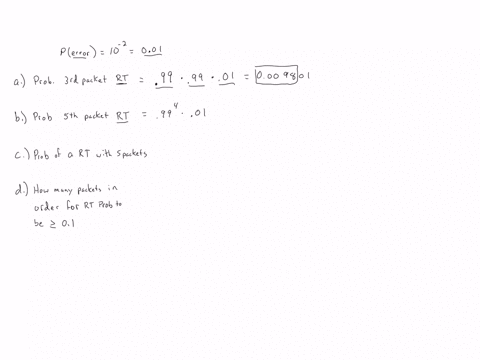 P(error) = 10⁻² = 0.01
a.) Prob. 3rd packet RT = .99 · .99 · .01 = 0.009801
b.) Prob 5th packet RT = .99⁴ · .01
c.) Prob of a RT with 5 packets
d.) How many packets in
order for RT Prob to
be ≥ 0.1